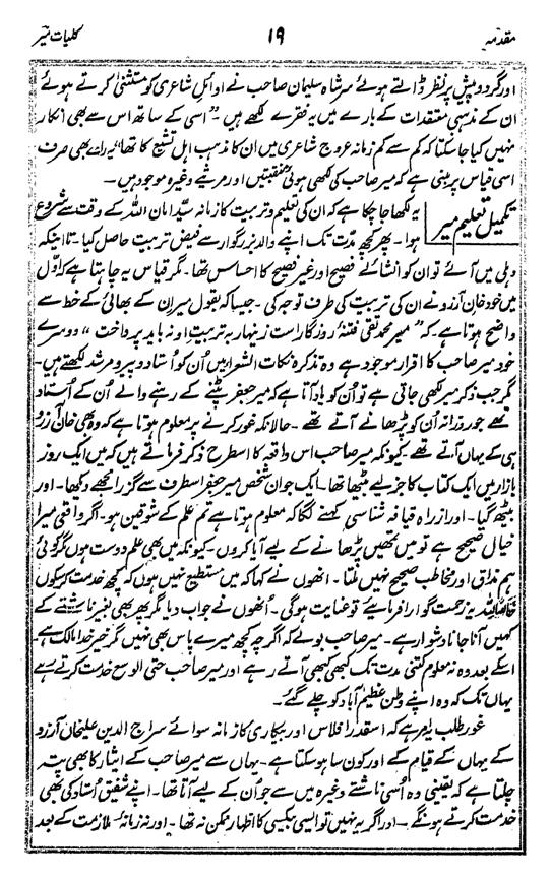 مقدمہ ۱۹ کلیات میر
اور گرد و پیش پر نظر ڈالتے ہوئے سرشاہ سلیمان صاحب نے اوائل شاعری کو مستثنیٰ کرتے ہوئے
ان کے مذہبی معتقدات کے بارے میں یہ فقرے لکھے ہیں۔ "اسی کے ساتھ اس سے بھی انکار
نہیں کیا جا سکتا کہ کم سے کم زمانہ عروج شاعری میں ان کا مذہب اہل تشیع کا تھا" یہ رائے بھی صرف
اسی قیاس پر مبنی ہے کہ میر صاحب کی لکھی ہوئی منقبتیں اور مرثیے وغیرہ موجود ہیں۔
تکمیل تعلیم میر یہ لکھا جا چکا ہے کہ ان کی تعلیم و تربیت کا زمانہ سید امان اللہ کے وقت سے شروع
ہوا۔ پھر کچھ مدت تک اپنے والد بزرگوار سے فیض تربیت حاصل کیا۔ تا اینکہ
دہلی میں آئے تو ان کو انشائے فصیح اور غیر فصیح کا احساس تھا۔ مگر قیاس یہ چاہتا ہے کہ اوّل
میں خود خان آرزو نے ان کی تربیت کی طرف توجہ کی۔ جیسا کہ بقول میر ان کے بھائی کے خط سے
واضح ہوتا ہے کہ "میر محمد تقی فتنۂ روزگار است زینہار بہ تربیت او نہ باید پرداخت" دوسرے
خود میر صاحب کا اقرار موجود ہے وہ تذکرہ نکات الشعرا میں ان کو اُستاد و پیر و مرشد لکھتے ہیں۔
مگر جب ذکر میر لکھی جاتی ہے تو اُن کو یاد آتا ہے کہ میر جعفر پٹنے کے رہنے والے اُن کے اُستاد
تھے جو روزانہ اُن کو پڑھانے آتے تھے۔ حالانکہ غور کرنے پر معلوم ہوتا ہے کہ وہ بھی خان آرزو
ہی کے یہاں آتے تھے۔ کیونکہ میر صاحب اس واقعہ کا اسطرح ذکر فرماتے ہیں کہ میں ایک روز
بازار میں ایک کتاب کا جز لیے بیٹھا تھا۔ ایک جوان شخص میر جعفر اسطرف سے گزرا مجھے دیکھا۔ اور
بیٹھ گیا۔ اور از راہ قیافہ شناسی کہنے لگا کہ معلوم ہوتا ہے تم علم کے شوقین ہو۔ اگر واقعی میرا
خیال صحیح ہے تو میں تمھیں پڑھانے کے لیے آیا کروں۔ کیونکہ میں بھی علم دوست ہوں مگر کوئی
ہم مذاق اور مخاطب صحیح نہیں ملتا۔ انھوں نے کہا کہ میں مستطیع نہیں ہوں کہ کچھ خدمت کر سکوں
خالصاً للہ یہ زحمت گوارا فرمایئے تو عنایت ہوگی۔ اُنھوں نے جواب دیا مگر پھر بھی بغیر ناشتے کے
کہیں آنا جانا دشوار ہے۔ میر صاحب بولے کہ اگرچہ کچھ میرے پاس بھی نہیں مگر خیر خدا مالک ہے
اسکے بعد وہ نہ معلوم کتنی مدت تک کبھی کبھی آتے رہے اور میر صاحب حتی الوسع خدمت کرتے رہے
یہاں تک کہ وہ اپنے وطن عظیم آباد کو چلے گئے۔
غور طلب یہ امر ہے کہ اسقدر افلاس اور بیکاری کا زمانہ سوائے سراج الدین علیخاں آرزو
کے یہاں کے قیام کے اور کون سا ہو سکتا ہے۔ یہاں سے میر صاحب کے ایثار کا بھی پتہ
چلتا ہے کہ یعنی وہ اُسی ناشتے وغیرہ میں سے جو اُن کے لیے آتا تھا۔ اپنے شفیق اُستاد کی بھی
خدمت کرتے ہونگے۔ اور اگر یہ نہیں تو ایسی بیکسی کا اظہار ممکن نہ تھا۔ اور نہ زمانۂ ملازمت کے بعد